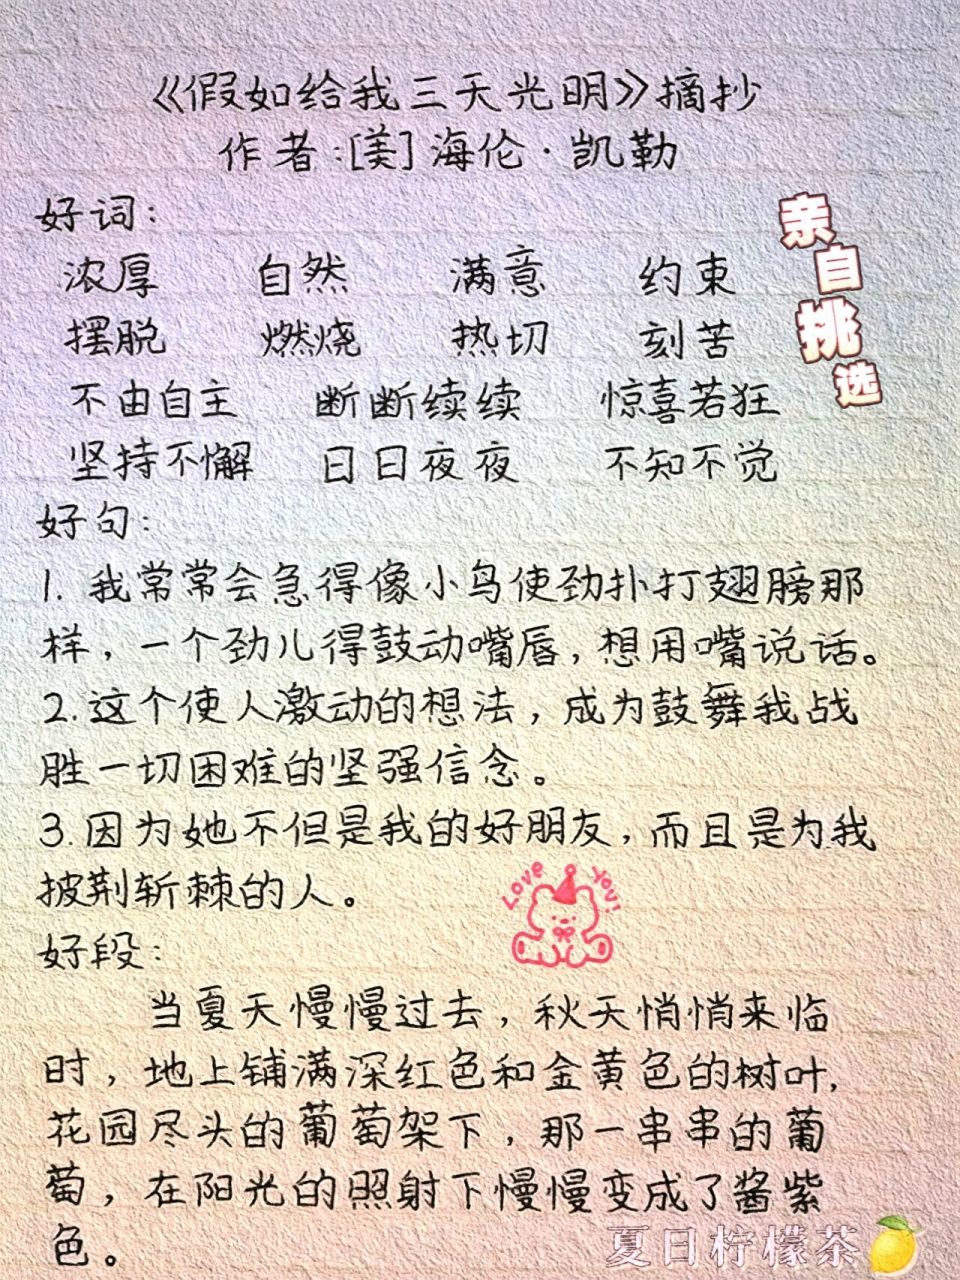 《假如给我三天光明》摘抄
作者:[美]海伦·凯勒
好词:
浓厚 自然 满意 约束
摆脱 燃烧 热切 刻苦
不由自主 断断续续 惊喜若狂
坚持不懈 日日夜夜 不知不觉
亲自挑选
好句:
1. 我常常会急得像小鸟使劲扑打翅膀那
样,一个劲儿得鼓动嘴唇,想用嘴说话。
2.这个使人激动的想法,成为鼓舞我战
胜一切困难的坚强信念。
3.因为她不但是我的好朋友,而且是为我
披荆斩棘的人。
LOVE YOU!
好段:
当夏天慢慢过去,秋天悄悄来临
时,地上铺满深红色和金黄色的树叶,
花园尽头的葡萄架下,那一串串的葡
萄,在阳光的照射下慢慢变成了酱紫
色。
夏日柠檬茶